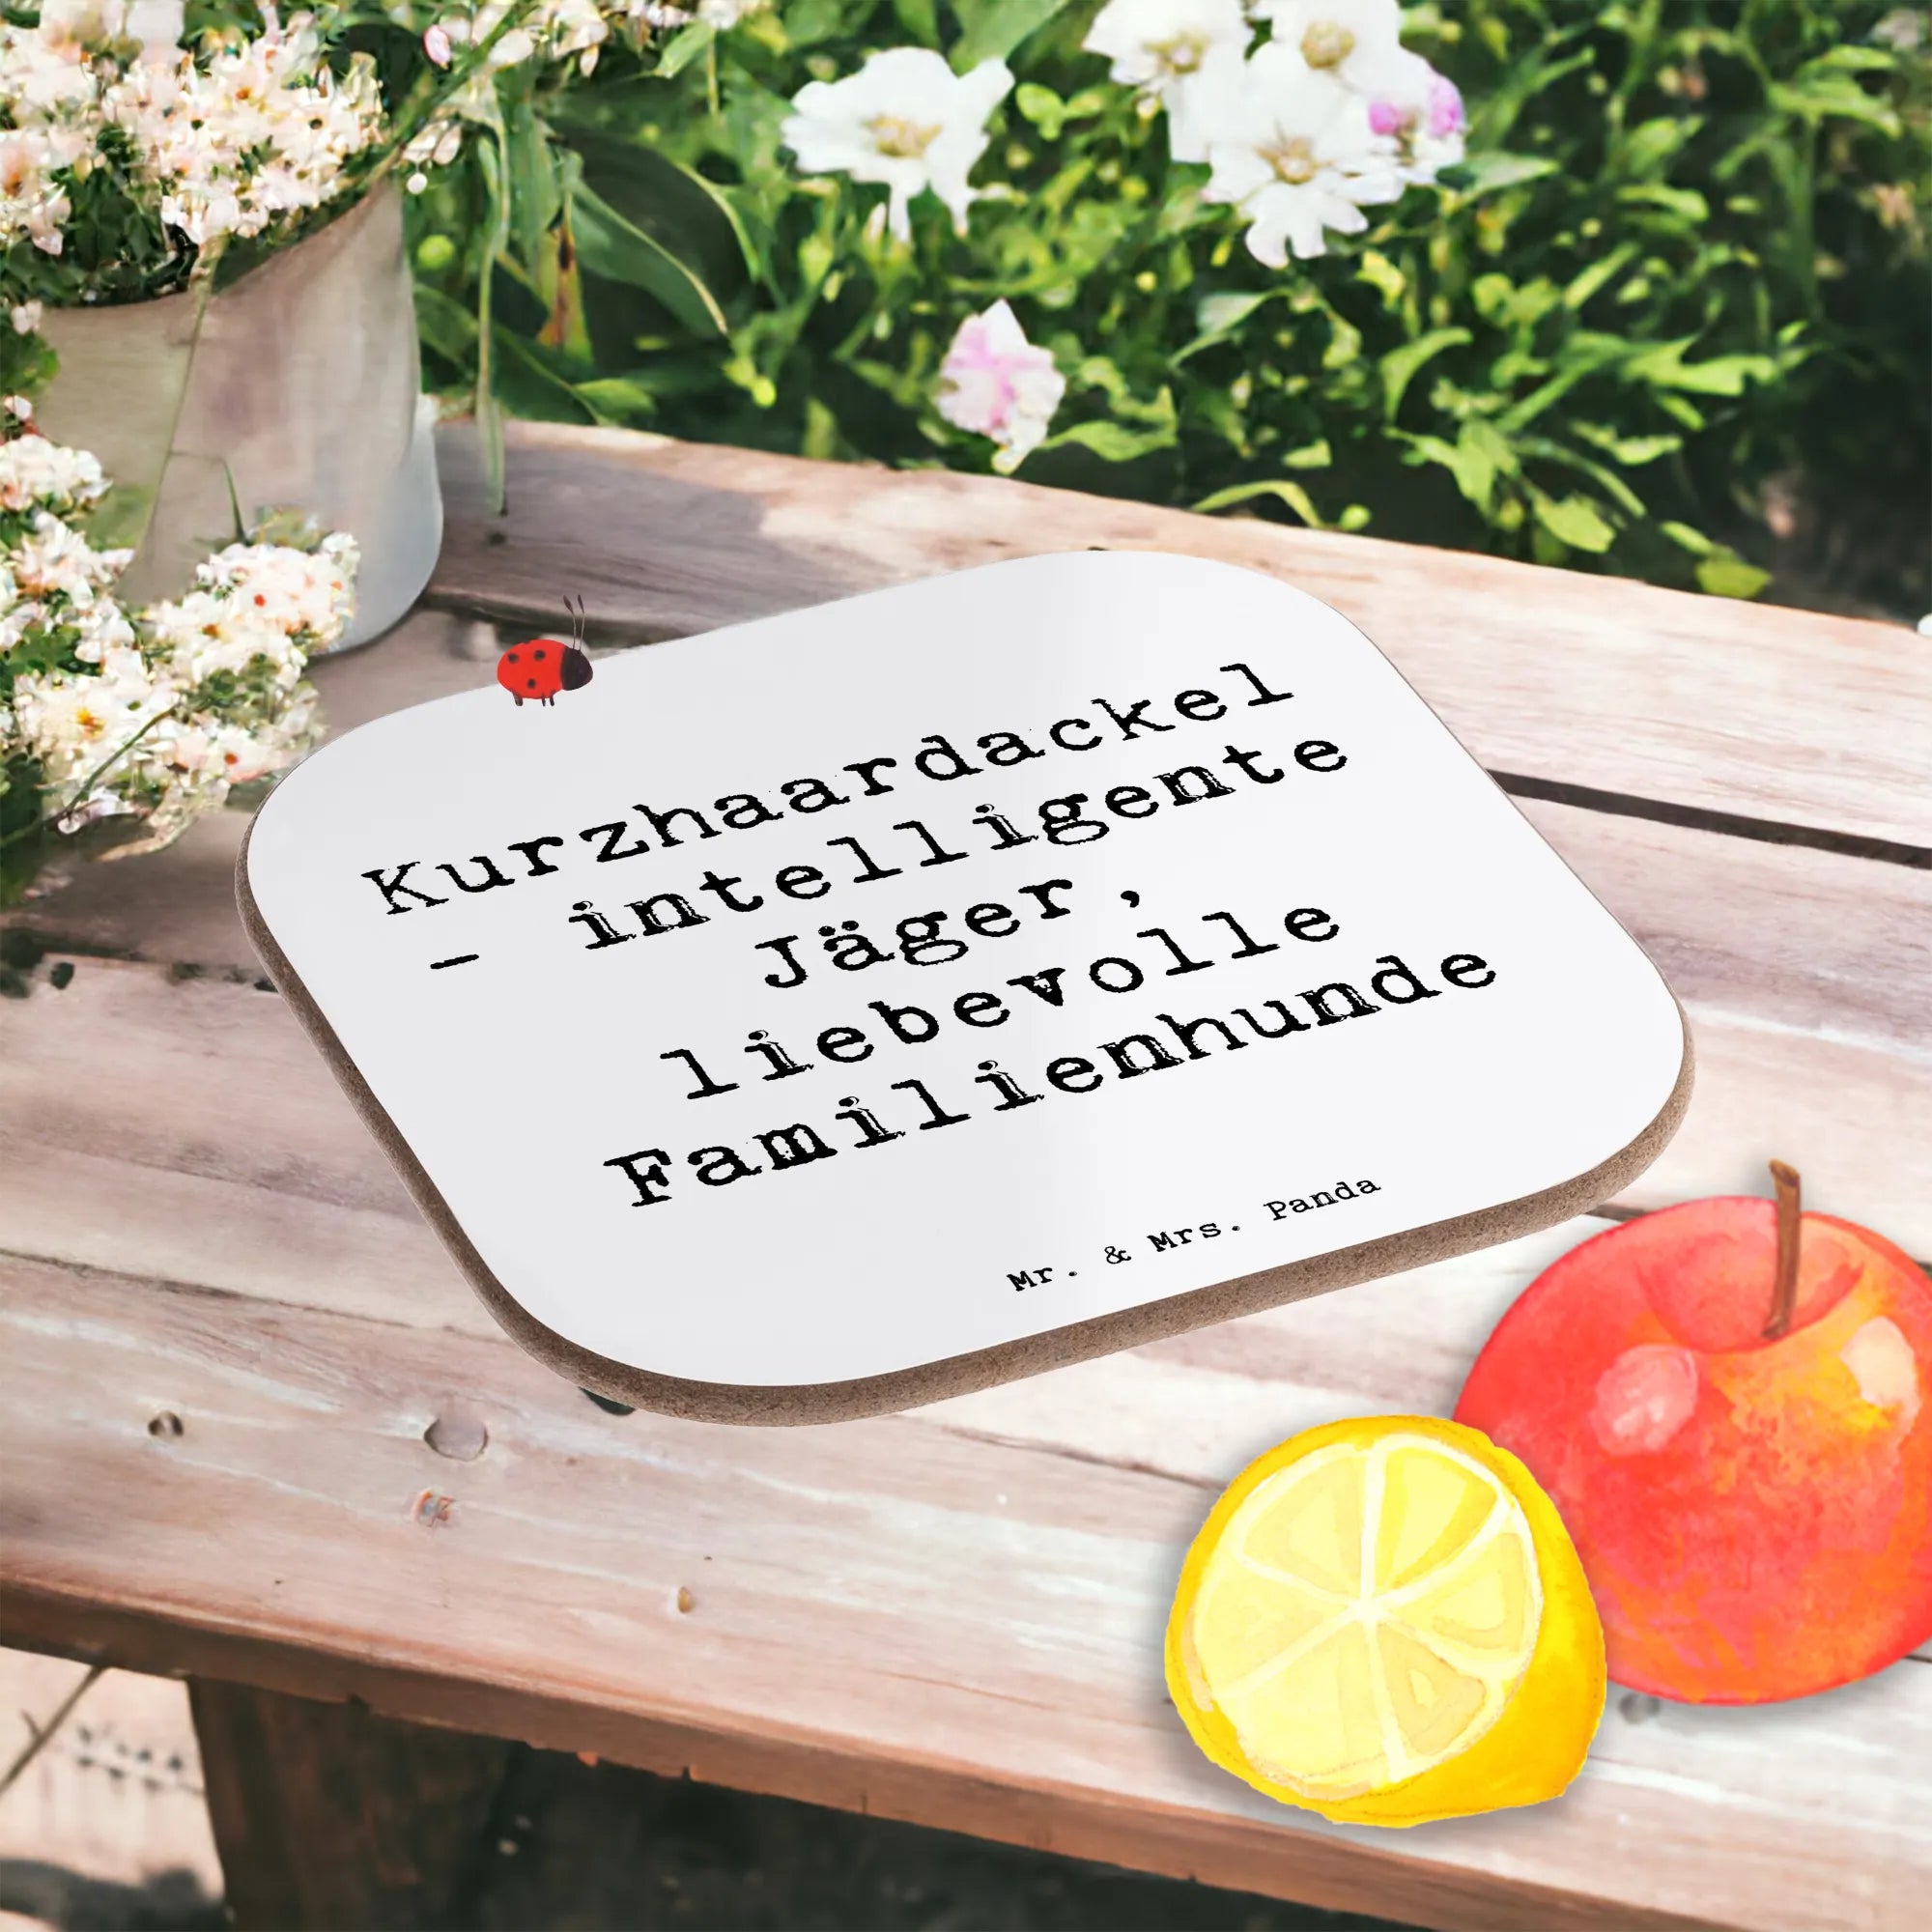 Kurzhaardackel
- intelligente
Jäger,
liebevolle
Familienhunde
Mr. & Mrs. Panda